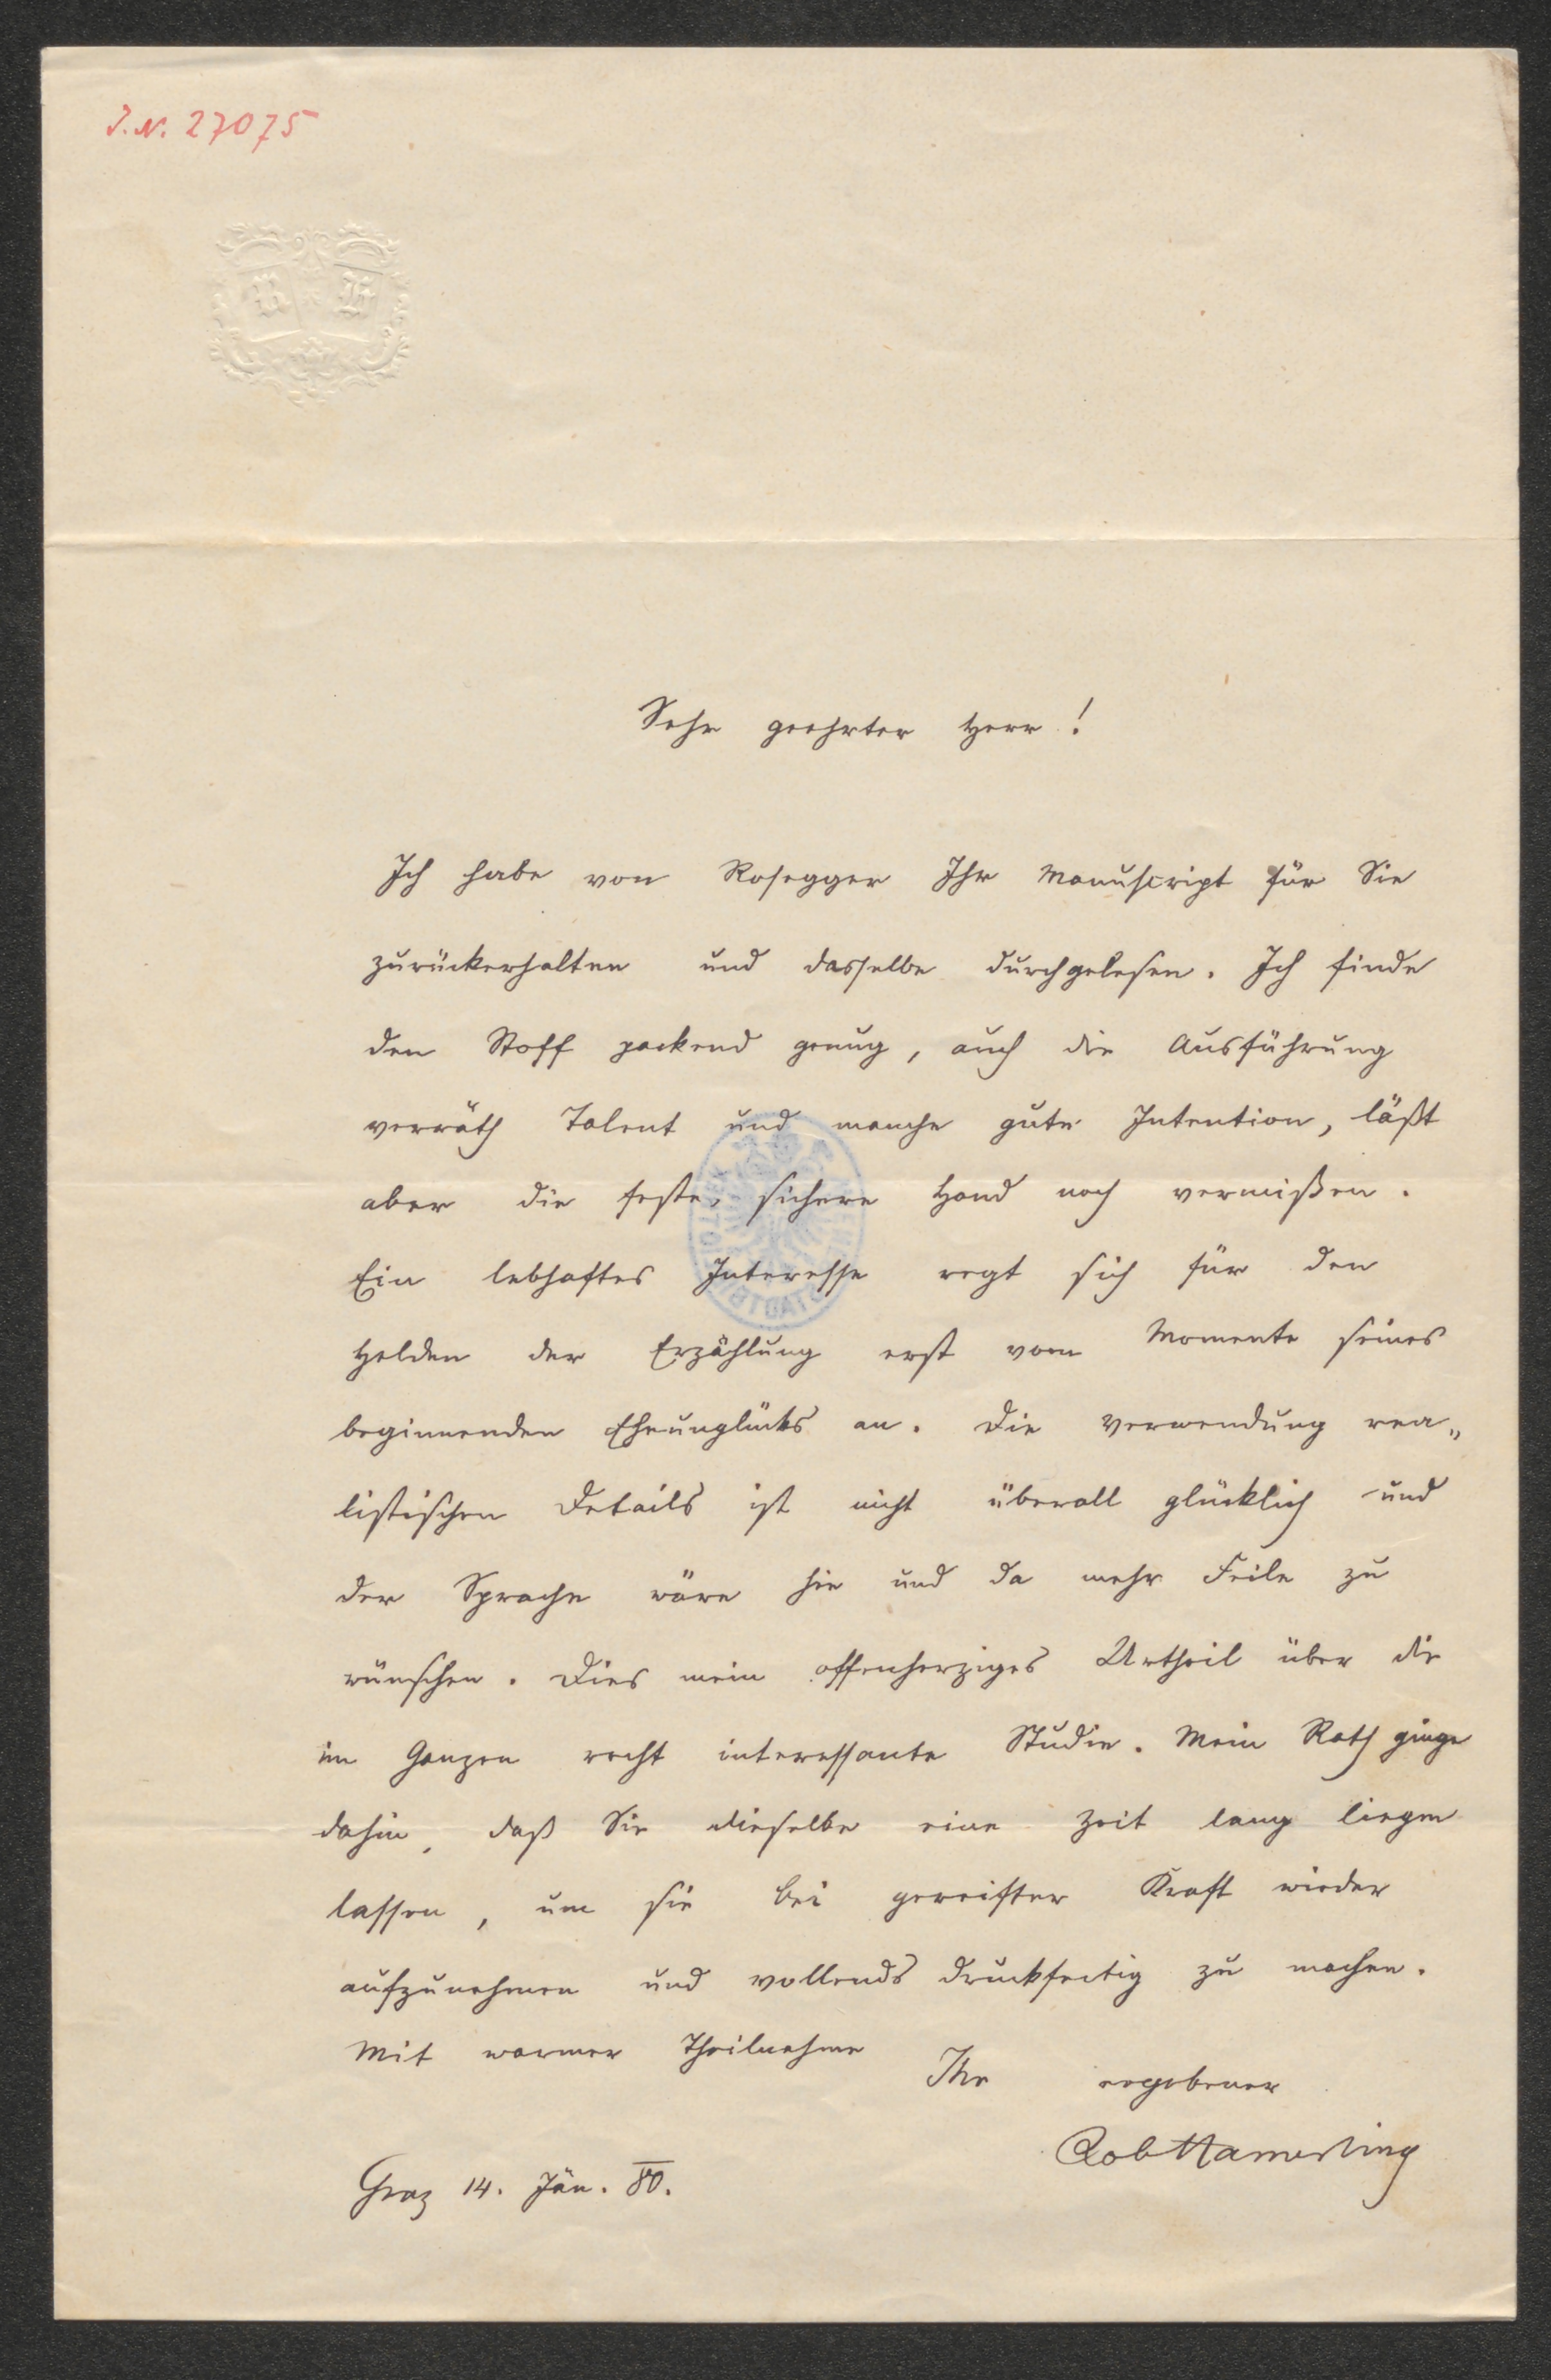 J.N. 27075
Sehr geehrter Herr!
Ich habe von Rosegger Ihr Manuscript für Sie
zurückerhalten und dasselbe durchgelesen. Ich finde
den Stoff packend genug, auch die Ausführung
verräth Talent und manche gute Intention, läßt
aber die feste, sichere Hand noch vermißen.
Ein lebhaftes Interesse regt sich für den
Helden der Erzählung erst vom Momente seines
beginnenden Eheunglücks an. Die Verwendung rea„
listischen Details ist nicht überall glücklich und
der Sprache wäre hie und da mehr Feile zu
wünschen. Dies mein offenherziges Urtheil über die
im Ganzen recht interessante Studie. Mein Rath ginge
dahin, daß Sie dieselbe eine Zeit lang liegen
lassen, um sie bei gereifter Kraft wieder
aufzunehmen und vollends druckfertig zu machen.
Mit warmer Theilnahme
Ihr ergebener
Rob Hamerling
Graz 14. Jän. 80.